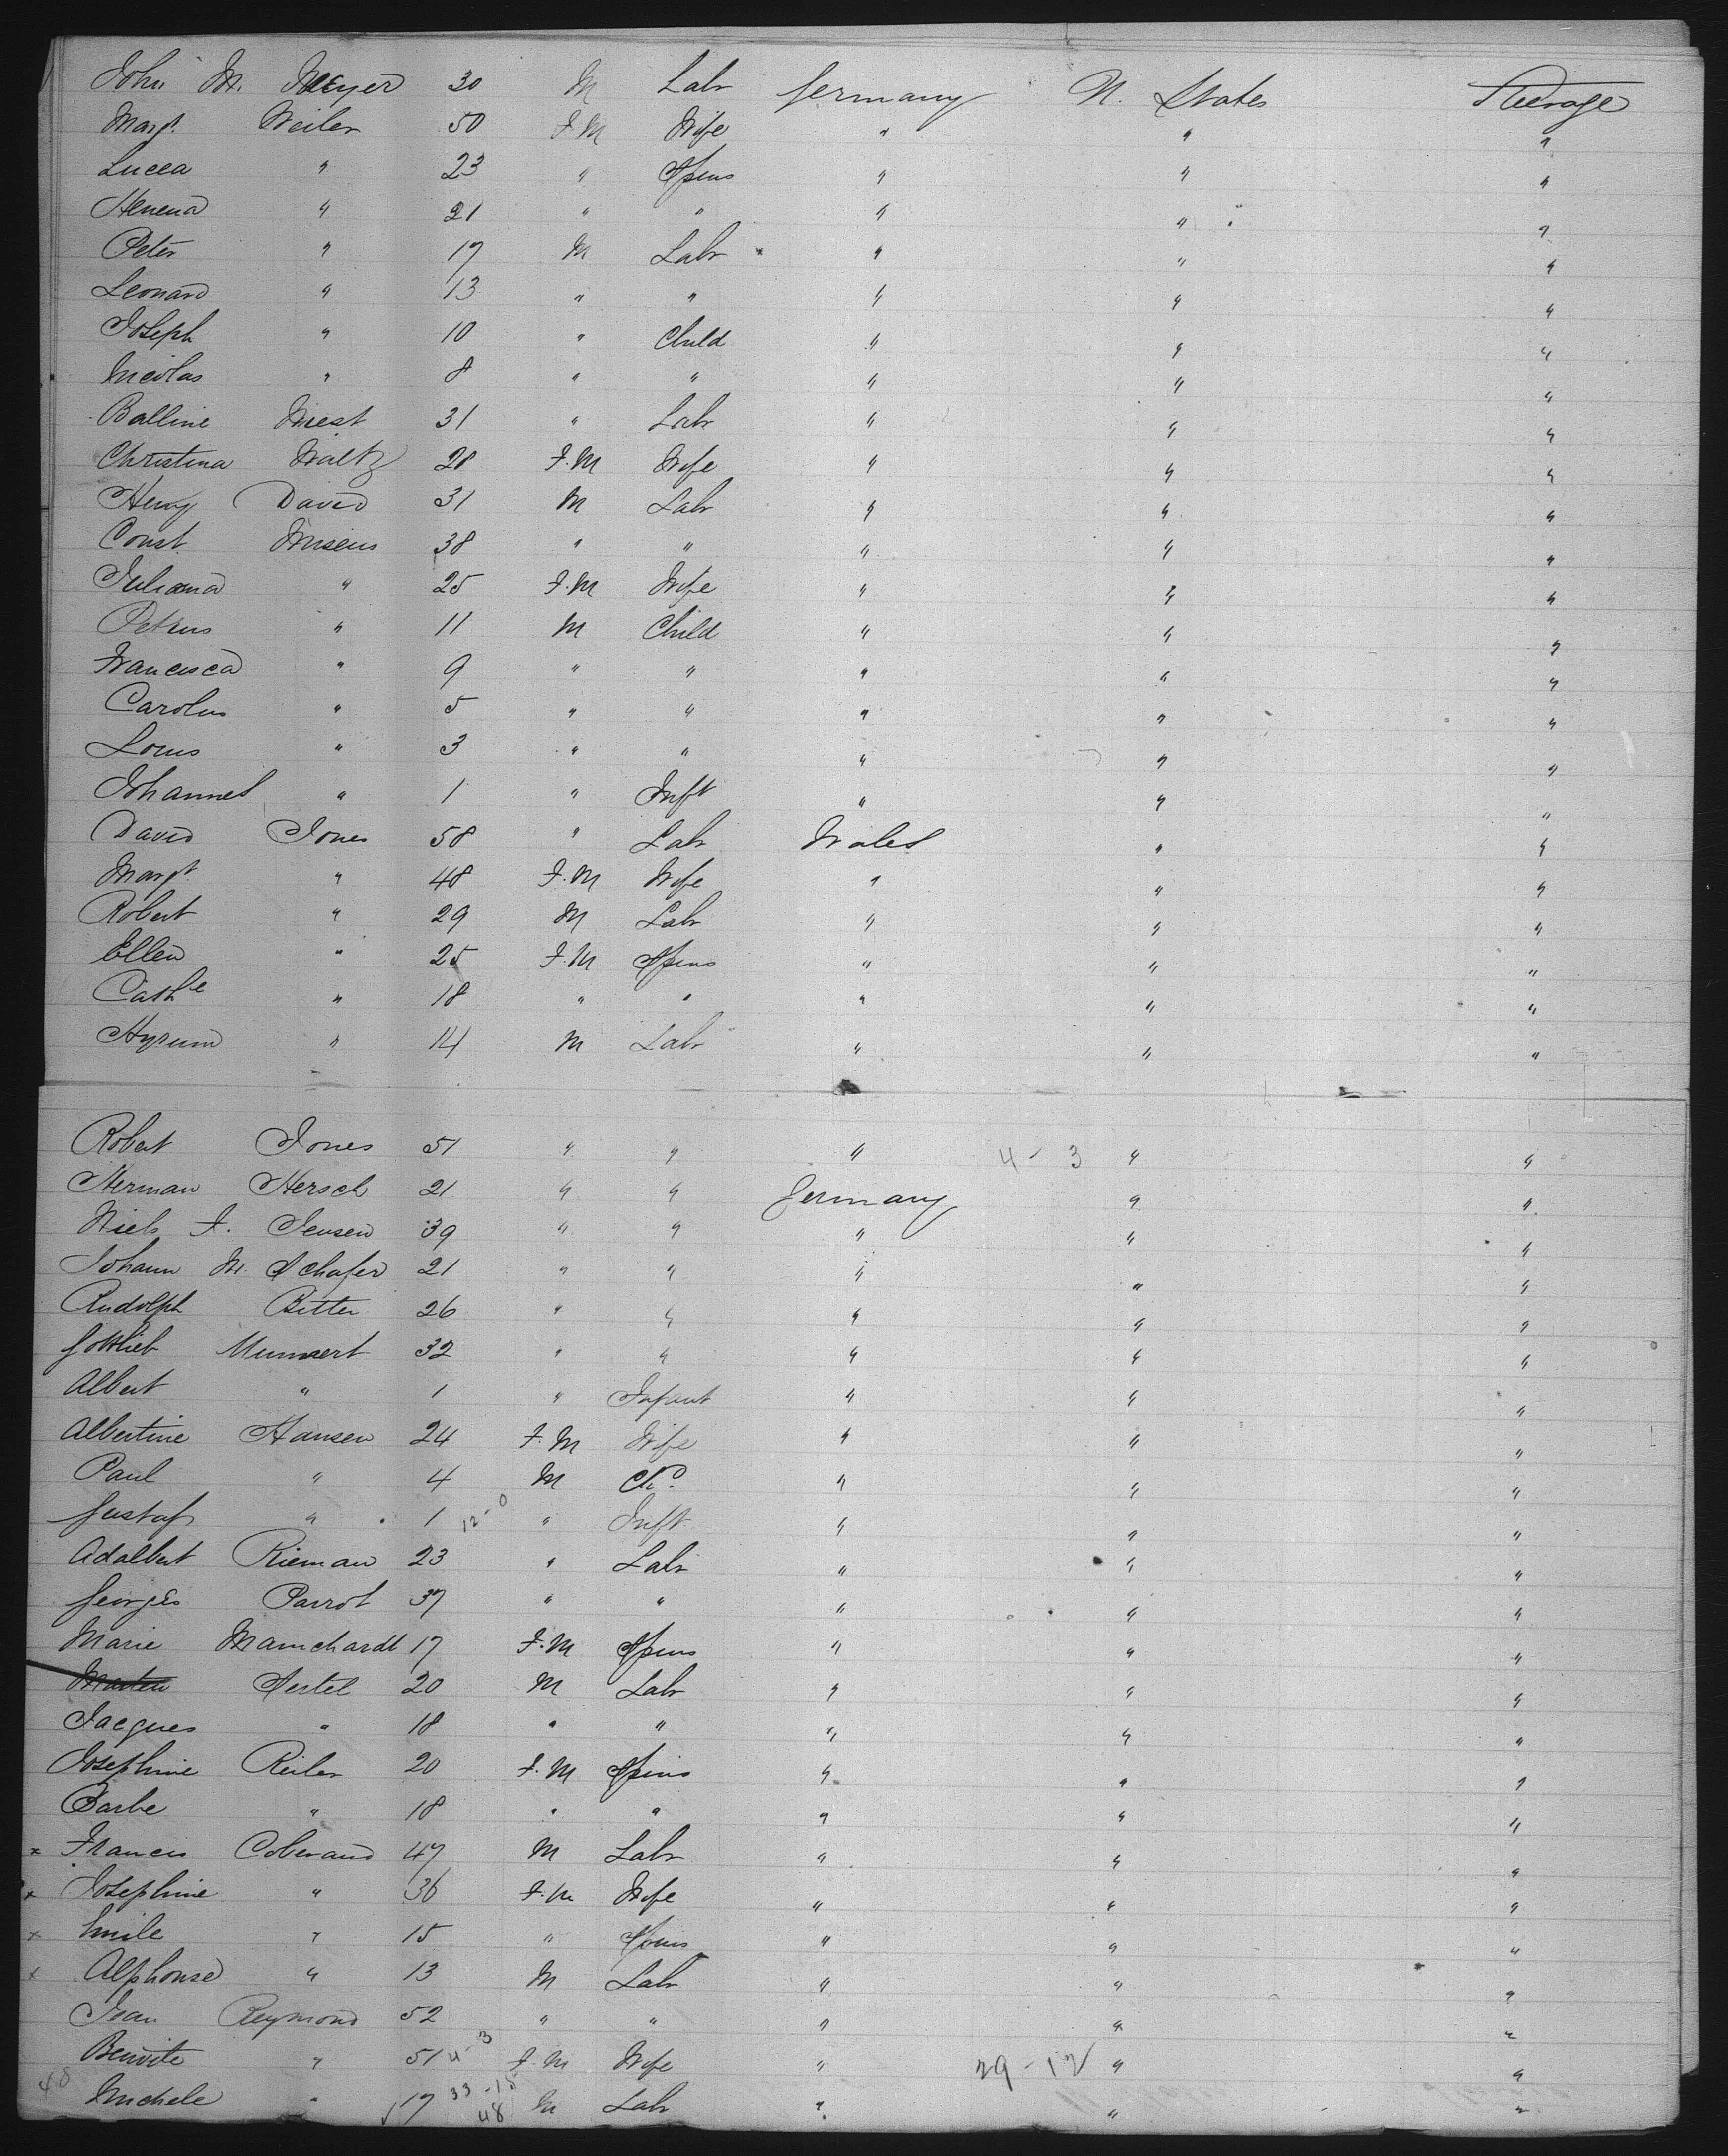 John M. Meyer 30 M Labr Germany U. States Steerage
Margt. Weiler 50 F.M Wife " " "
Lucca " 23 " Spins " " "
Henena " 21 " " " " "
Peter " 17 M Labr " " "
Leonard " 13 " " " " "
Joseph " 10 " Child " " "
Nicolas " 8 " " " " "
Balline Niest 31 " Labr " " "
Christina Waltz 28 F.M Wife " " "
Henry David 31 M Labr " " "
Const 38 " " " " "
Juliana " 25 F.M Wife " " "
Petrus " 11 M Child " " "
Francisca " 9 " " " " "
Carolus " 5 " " " " "
Louis " 3 " " " " "
Johannes " 1 " Inft " " "
David Jones 58 " Labr Wales " "
Margt. " 48 F.M Wife " " "
Robert " 29 M Labr " " "
Ellen " 25 F.M Spins " " "
Cathle " 18 " " " " "
Hyrum " 14 M Labr " " "
Robert Jones 51 " " " 4-3 " "
Herman Hersch 21 " " Germany " "
Niels F. Jensen 39 " " " " "
Johann M. Schafer 21 " " " " "
Rudolph Bitter 26 " " " " "
Gottlieb Mummert 32 " " " " "
Albert " 1 " Infant " " "
Albertine Hansen 24 F.M Wife " " "
Paul " 4 M Ch. " " "
Gustaf " 1 12-0 " Inft " " "
Adalbert Rieman 23 " Labr " " "
Georges Parrot 37 " " " " "
Marie Manchardt 17 F.M Spins " " "
Martin Sestel 20 M Labr " " "
Jacques " 18 " " " " "
Josephine Reiler 20 F.M Spins " " "
Barbe " 18 " " " " "
x Francis Coberand 47 M Labr " " "
x Josephine " 36 F.M Wife " " "
x Emile " 15 " Spins " " "
x Alphonse " 13 M Labr " " "
Jean Reymond 52 " " " " "
Benvite " 51 4-3 F.M Wife " 29-12 " "
48 Michele " 17 33-15 48 M Labr " " "